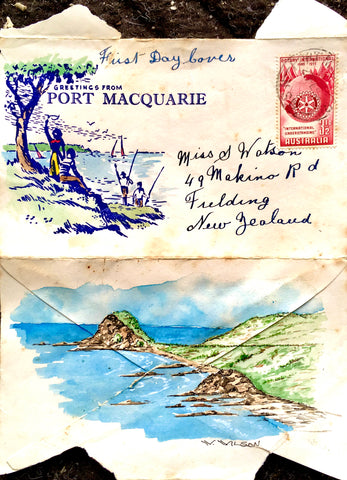 First Day Cover
GREETINGS FROM
PORT MACQUARIE
ROTARY INTERNATIONAL
"INTERNATIONAL
UNDERSTANDING"
3½D
AUSTRALIA
Miss S Watson
49 Makino Rd
Fielding
New Zealand
W. WILSON